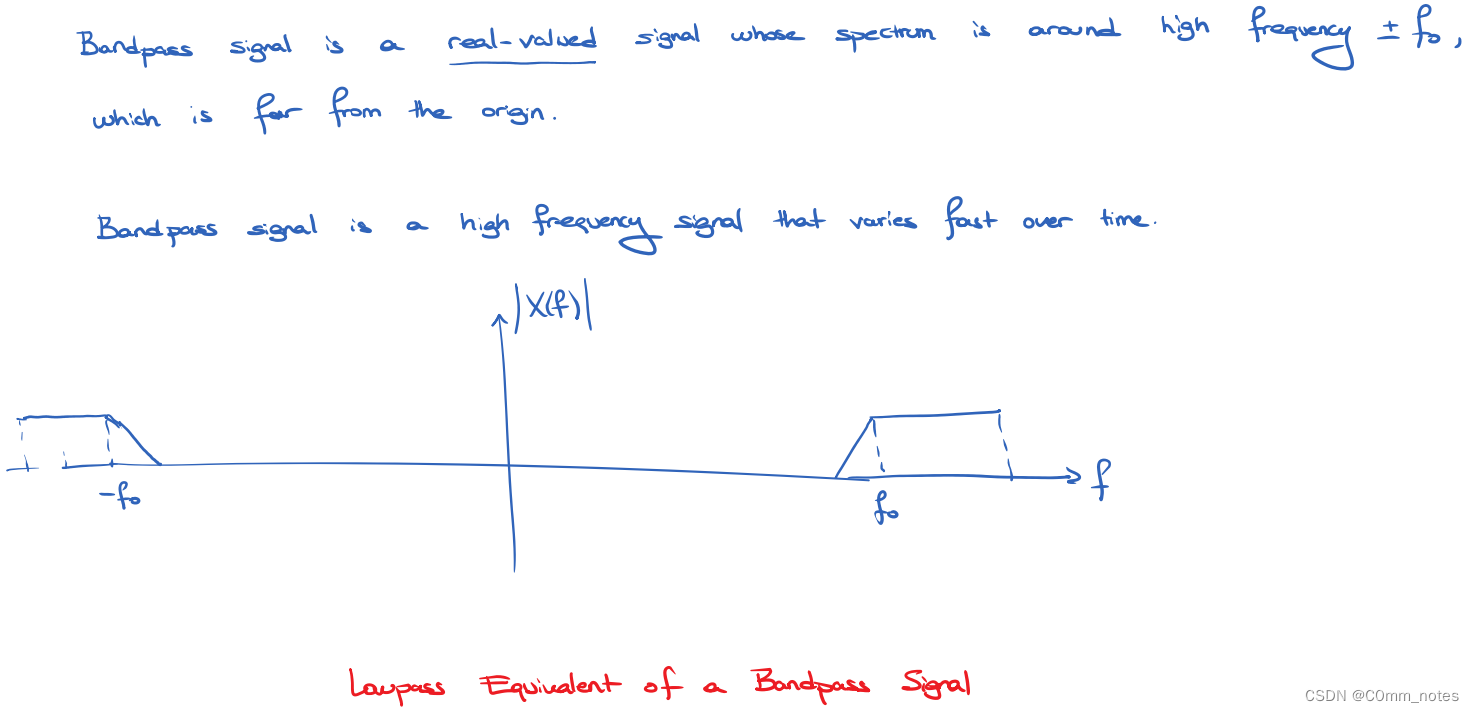 Bandpass signal is a real-valued signal whose spectrum is around high frequency ± f₀,
which is far from the origin.
Bandpass signal is a high frequency signal that varies fast over time.
|X(f)|
-f₀
f₀
f
Lowpass Equivalent of a Bandpass Signal
CSDN @C0mm_notes